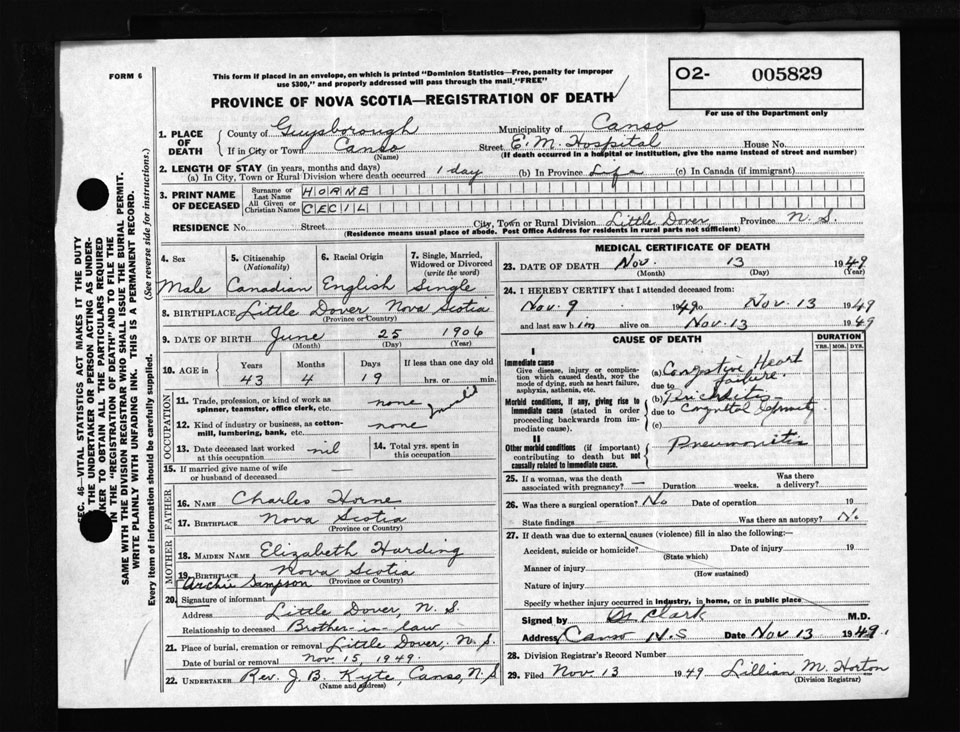 FORM 6
This form if placed in an envelope, on which is printed "Dominion Statistics—Free, penalty for improper
use $300," and properly addressed will pass through the mail "FREE"
PROVINCE OF NOVA SCOTIA—REGISTRATION OF DEATH
O2- 005829
For use of the Department only
SEC. 46—VITAL STATISTICS ACT MAKES IT THE DUTY
THE UNDERTAKER OR PERSON ACTING AS UNDER-
KER TO OBTAIN ALL THE PARTICULARS REQUIRED
IN THE "REGISTRATION OF DEATH" AND TO FILE THE
SAME WITH THE DIVISION REGISTRAR WHO SHALL ISSUE THE BURIAL PERMIT.
WRITE PLAINLY WITH UNFADING INK. THIS IS A PERMANENT RECORD.
Every item of information should be carefully supplied. (See reverse side for instructions.)
1. PLACE OF DEATH
County of Guysborough Municipality of Canso
If in City or Town Canso Street E. M. Hospital House No.
(Name) (If death occurred in a hospital or institution, give the name instead of street and number)
2. LENGTH OF STAY (in years, months and days)
(a) In City, Town or Rural Division where death occurred 1 day (b) In Province Life (c) In Canada (if immigrant)
3. PRINT NAME OF DECEASED
Surname or Last Name HORNE
All Given or Christian Names CECIL
RESIDENCE No. Street City, Town or Rural Division Little Dover Province N. S.
(Residence means usual place of abode. Post Office Address for residents in rural parts not sufficient)
4. Sex 5. Citizenship (Nationality) 6. Racial Origin 7. Single, Married, Widowed or Divorced (write the word)
Male Canadian English Single
8. BIRTHPLACE Little Dover Nova Scotia
(Province or Country)
9. DATE OF BIRTH June 25 1906
(Month) (Day) (Year)
10. AGE in Years Months Days If less than one day old
43 4 19 hrs. or min.
OCCUPATION
11. Trade, profession, or kind of work as
spinner, teamster, office clerk, etc. none Invalid
12. Kind of industry or business, as cotton-
mill, lumbering, bank, etc. none
13. Date deceased last worked at this occupation nil 14. Total yrs. spent in this occupation
15. If married give name of wife
or husband of deceased
FATHER
16. NAME Charles Horne
17. BIRTHPLACE Nova Scotia
(Province or Country)
MOTHER
18. MAIDEN NAME Elizabeth Harding
19. BIRTHPLACE Nova Scotia
(Province or Country)
Archie Sampson
20. Signature of informant
Address Little Dover, N. S.
Relationship to deceased Brother-in-law
21. Place of burial, cremation or removal Little Dover, N. S.
Date of burial or removal Nov 15, 1949.
22. UNDERTAKER Rev. J. B. Kyte, Canso, N. S
(Name and address)
MEDICAL CERTIFICATE OF DEATH
23. DATE OF DEATH Nov. 13 1949
(Month) (Day) (Year)
24. I HEREBY CERTIFY that I attended deceased from:
Nov 9 1949 to Nov. 13 1949
and last saw him alive on Nov. 13 1949
CAUSE OF DEATH DURATION
YRS. MOS. DYS.
I
Immediate cause
Give disease, injury or complica-
tion which caused death, NOT the
mode of dying, such as heart failure,
asphyxia, asthenia, etc.
(a) Congestive Heart
failure.
due to
Morbid conditions, if any, giving rise to
immediate cause (stated in order
proceeding backwards from im-
mediate cause).
(b) Pericarditis-
due to Congenital Deformity
(c)
II
Other morbid conditions (if important)
contributing to death but not
causally related to immediate cause.
Pneumonitis
25. If a woman, was the death
associated with pregnancy? — Duration weeks. Was there a delivery?
26. Was there a surgical operation? No Date of operation 19
State findings Was there an autopsy? No
27. If death was due to external causes (violence) fill in also the following:
Accident, suicide or homicide? Date of injury 19
(State which)
Manner of injury
(How sustained)
Nature of injury
Specify whether injury occurred in industry, in home, or in public place
Signed by Clark M.D.
Address Canso N.S Date Nov 13 1949.
28. Division Registrar's Record Number
29. Filed Nov. 13 1949 Lillian M. Horton
(Division Registrar)